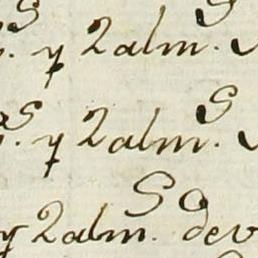 s. y 2 alm.s
s. y 2 alm.s
y 2 alm.s de